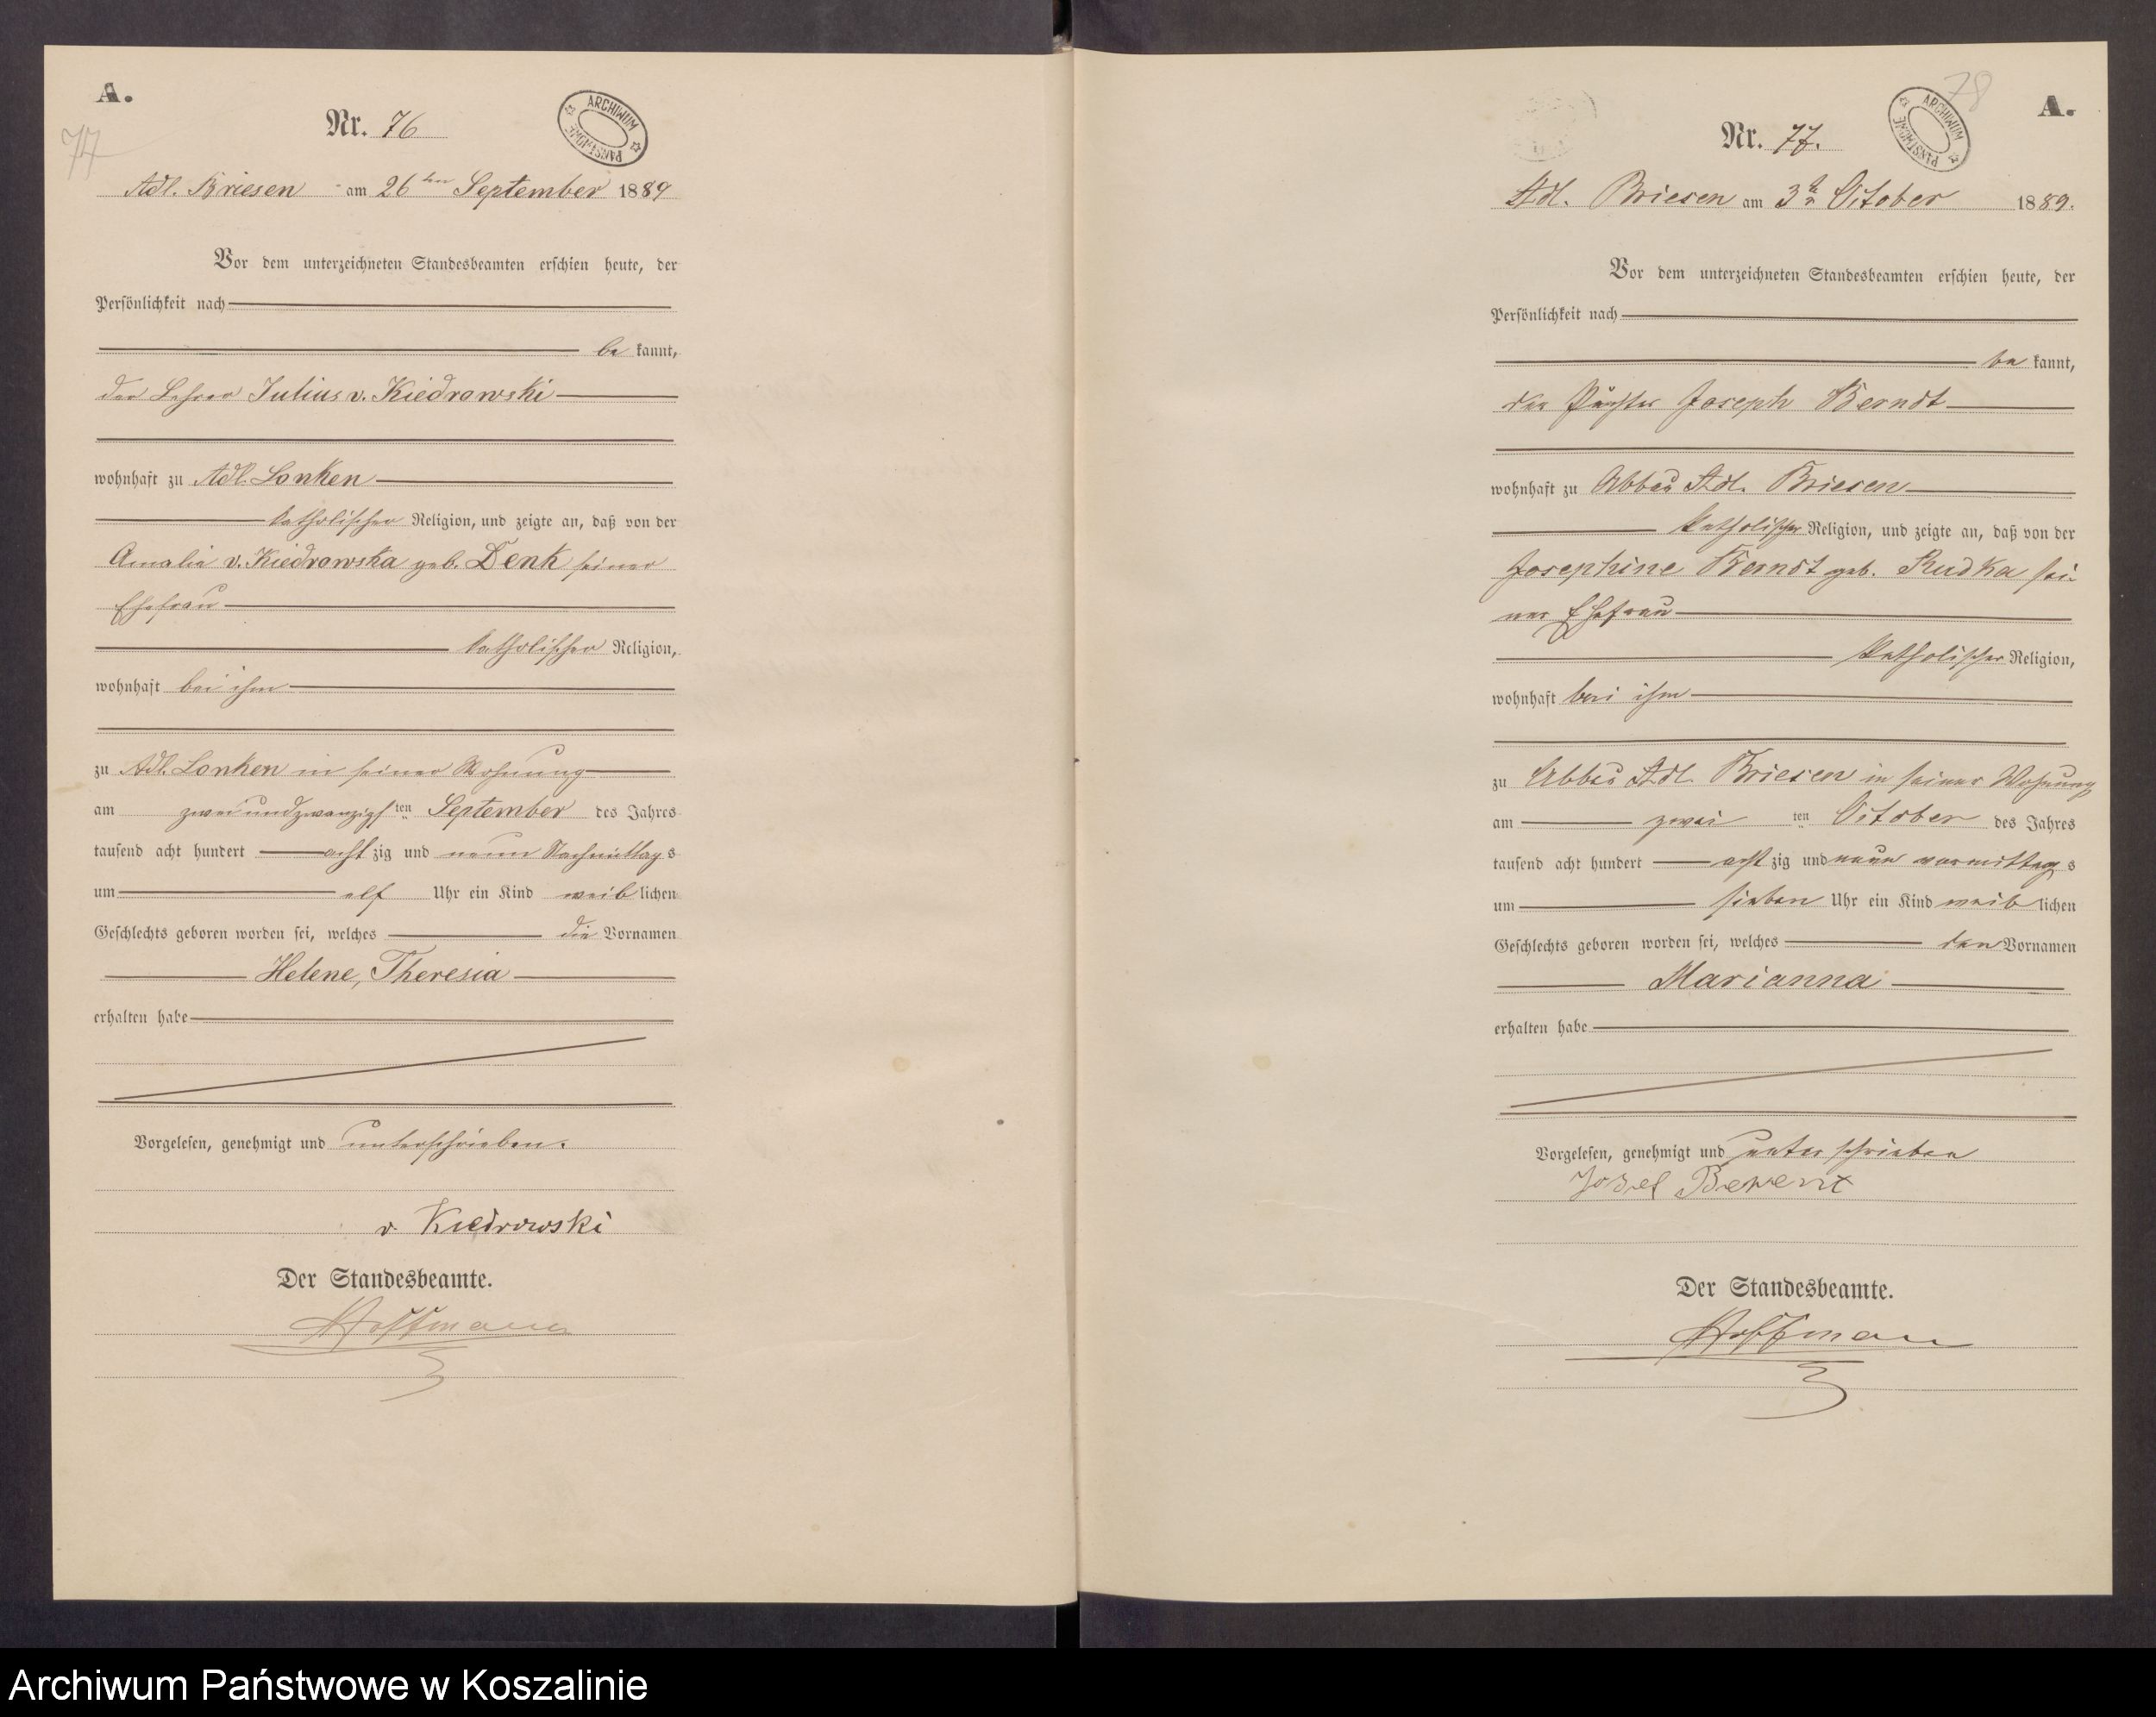 A.
77
Nr. 76
ARCHIWUM PAŃSTWOWE
Adl. Briesen am 26ten September 1889
Vor dem unterzeichneten Standesbeamten erschien heute, der
Persönlichkeit nach
be kannt,
der Lehrer Julius v. Kiedrowski
wohnhaft zu Adl. Lonken
katholischer Religion, und zeigte an, daß von der
Amalia v. Kiedrowska geb. Denk seiner
Ehefrau
katholischer Religion,
wohnhaft bei ihm
zu Adl. Lonken in seiner Wohnung
am zwei und zwanzigsten September des Jahres
tausend acht hundert acht zig und neun Nachmittags
um elf Uhr ein Kind weib lichen
Geschlechts geboren worden sei, welches die Vornamen
Helene, Theresia
erhalten habe
Vorgelesen, genehmigt und unterschrieben.
v. Kiedrowski
Der Standesbeamte.
Hoffmann
78
A.
Nr. 77.
ARCHIWUM PAŃSTWOWE
Adl. Briesen am 3ten October 1889.
Vor dem unterzeichneten Standesbeamten erschien heute, der
Persönlichkeit nach
be kannt,
der Pächter Joseph Berndt
wohnhaft zu Abbau Adl. Briesen
katholischer Religion, und zeigte an, daß von der
Josephine Berndt geb. Rudka sei-
ner Ehefrau
katholischer Religion,
wohnhaft bei ihm
zu Abbau Adl. Briesen in seiner Wohnung
am zwei ten October des Jahres
tausend acht hundert acht zig und neun vormittags
um sieben Uhr ein Kind weib lichen
Geschlechts geboren worden sei, welches den Vornamen
Marianna
erhalten habe
Vorgelesen, genehmigt und unterschrieben
Josef Berent
Der Standesbeamte.
Hoffmann
Archiwum Państwowe w Koszalinie